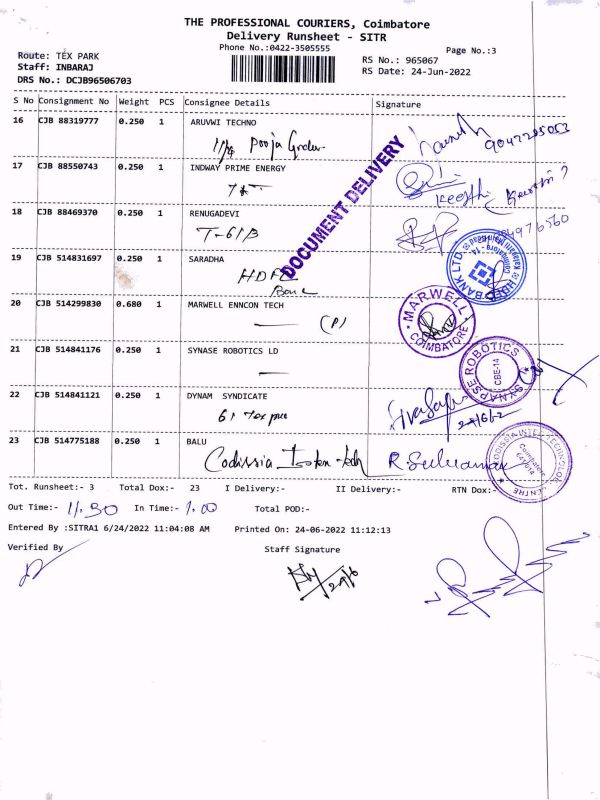 THE PROFESSIONAL COURIERS, Coimbatore
Delivery Runsheet - SITR
Phone No.:0422-3505555
Page No.:3
Route: TEX PARK
Staff: INBARAJ
DRS No.: DCJB96506703
RS No.: 965067
RS Date: 24-Jun-2022
S No Consignment No Weight PCS Consignee Details Signature
16 CJB 88319777 0.250 1 ARUVWI TECHNO
Pooja
17 CJB 88550743 0.250 1 INDWAY PRIME ENERGY
Keerthi
18 CJB 88469370 0.250 1 RENUGADEVI
T-61/B
19 CJB 514831697 0.250 1 SARADHA
HDFC
Bank
20 CJB 514299830 0.680 1 MARWELL ENNCON TECH
(P)
21 CJB 514841176 0.250 1 SYNASE ROBOTICS LD
22 CJB 514841121 0.250 1 DYNAM SYNDICATE
23 CJB 514775188 0.250 1 BALU
Codissia
DOCUMENT DELIVERY
HDFC BANK LTD.
MARWELL
COIMBATORE
SYNAPSE ROBOTICS
CBE-14
Tot. Runsheet:- 3 Total Dox:- 23 I Delivery:- II Delivery:- RTN Dox:-
Out Time:- 11.30 In Time:- 1.00 Total POD:-
Entered By :SITRA1 6/24/2022 11:04:08 AM Printed On: 24-06-2022 11:12:13
Verified By Staff Signature